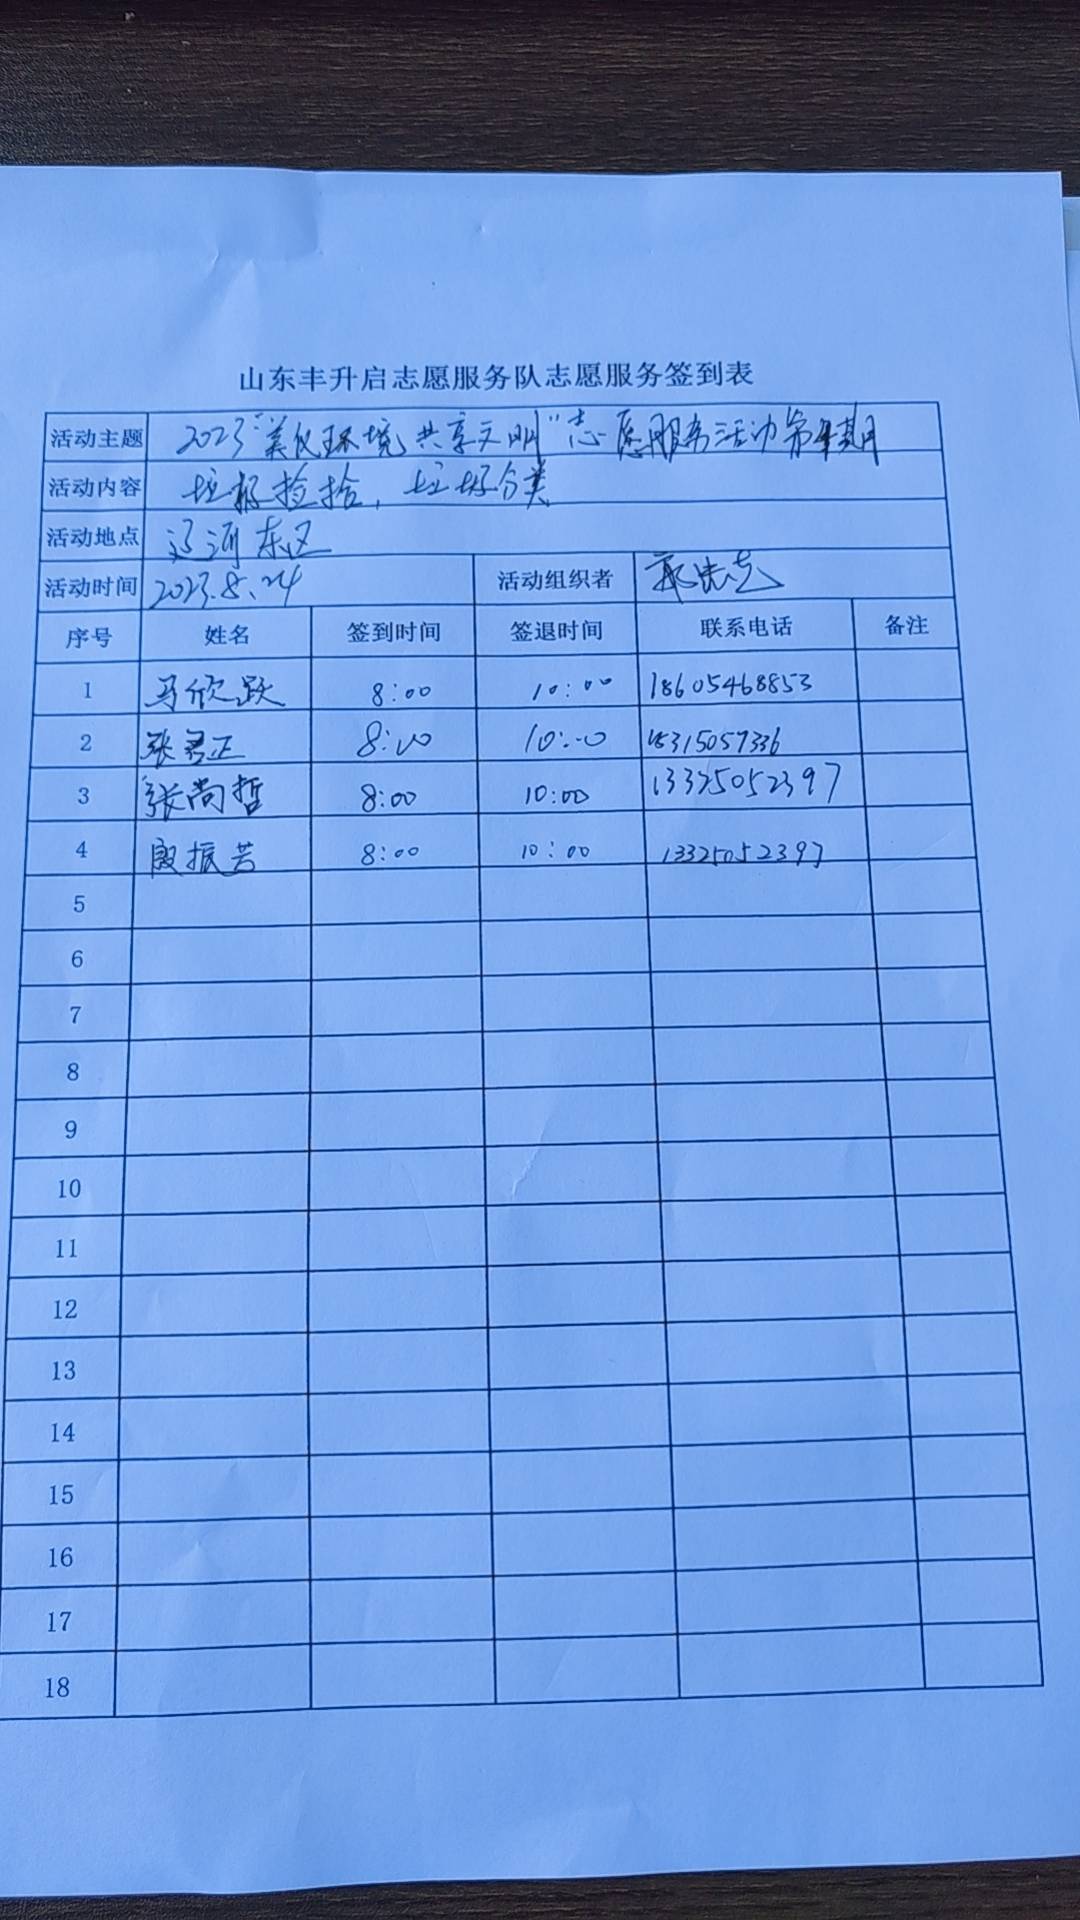 山东丰升启志愿服务队志愿服务签到表
活动主题 2023"美化环境 共享文明"志愿服务活动第 期
活动内容 垃圾捡拾，垃圾分类
活动地点 辽河东区
活动时间 2023.8.24 活动组织者
序号 姓名 签到时间 签退时间 联系电话 备注
1 马欣跃 8:00 10:00 18605468853
2 张君正 8:00 10:00 18315057336
3 张尚哲 8:00 10:00 13325052397
4 殷振芸 8:00 10:00 13325052397
5
6
7
8
9
10
11
12
13
14
15
16
17
18